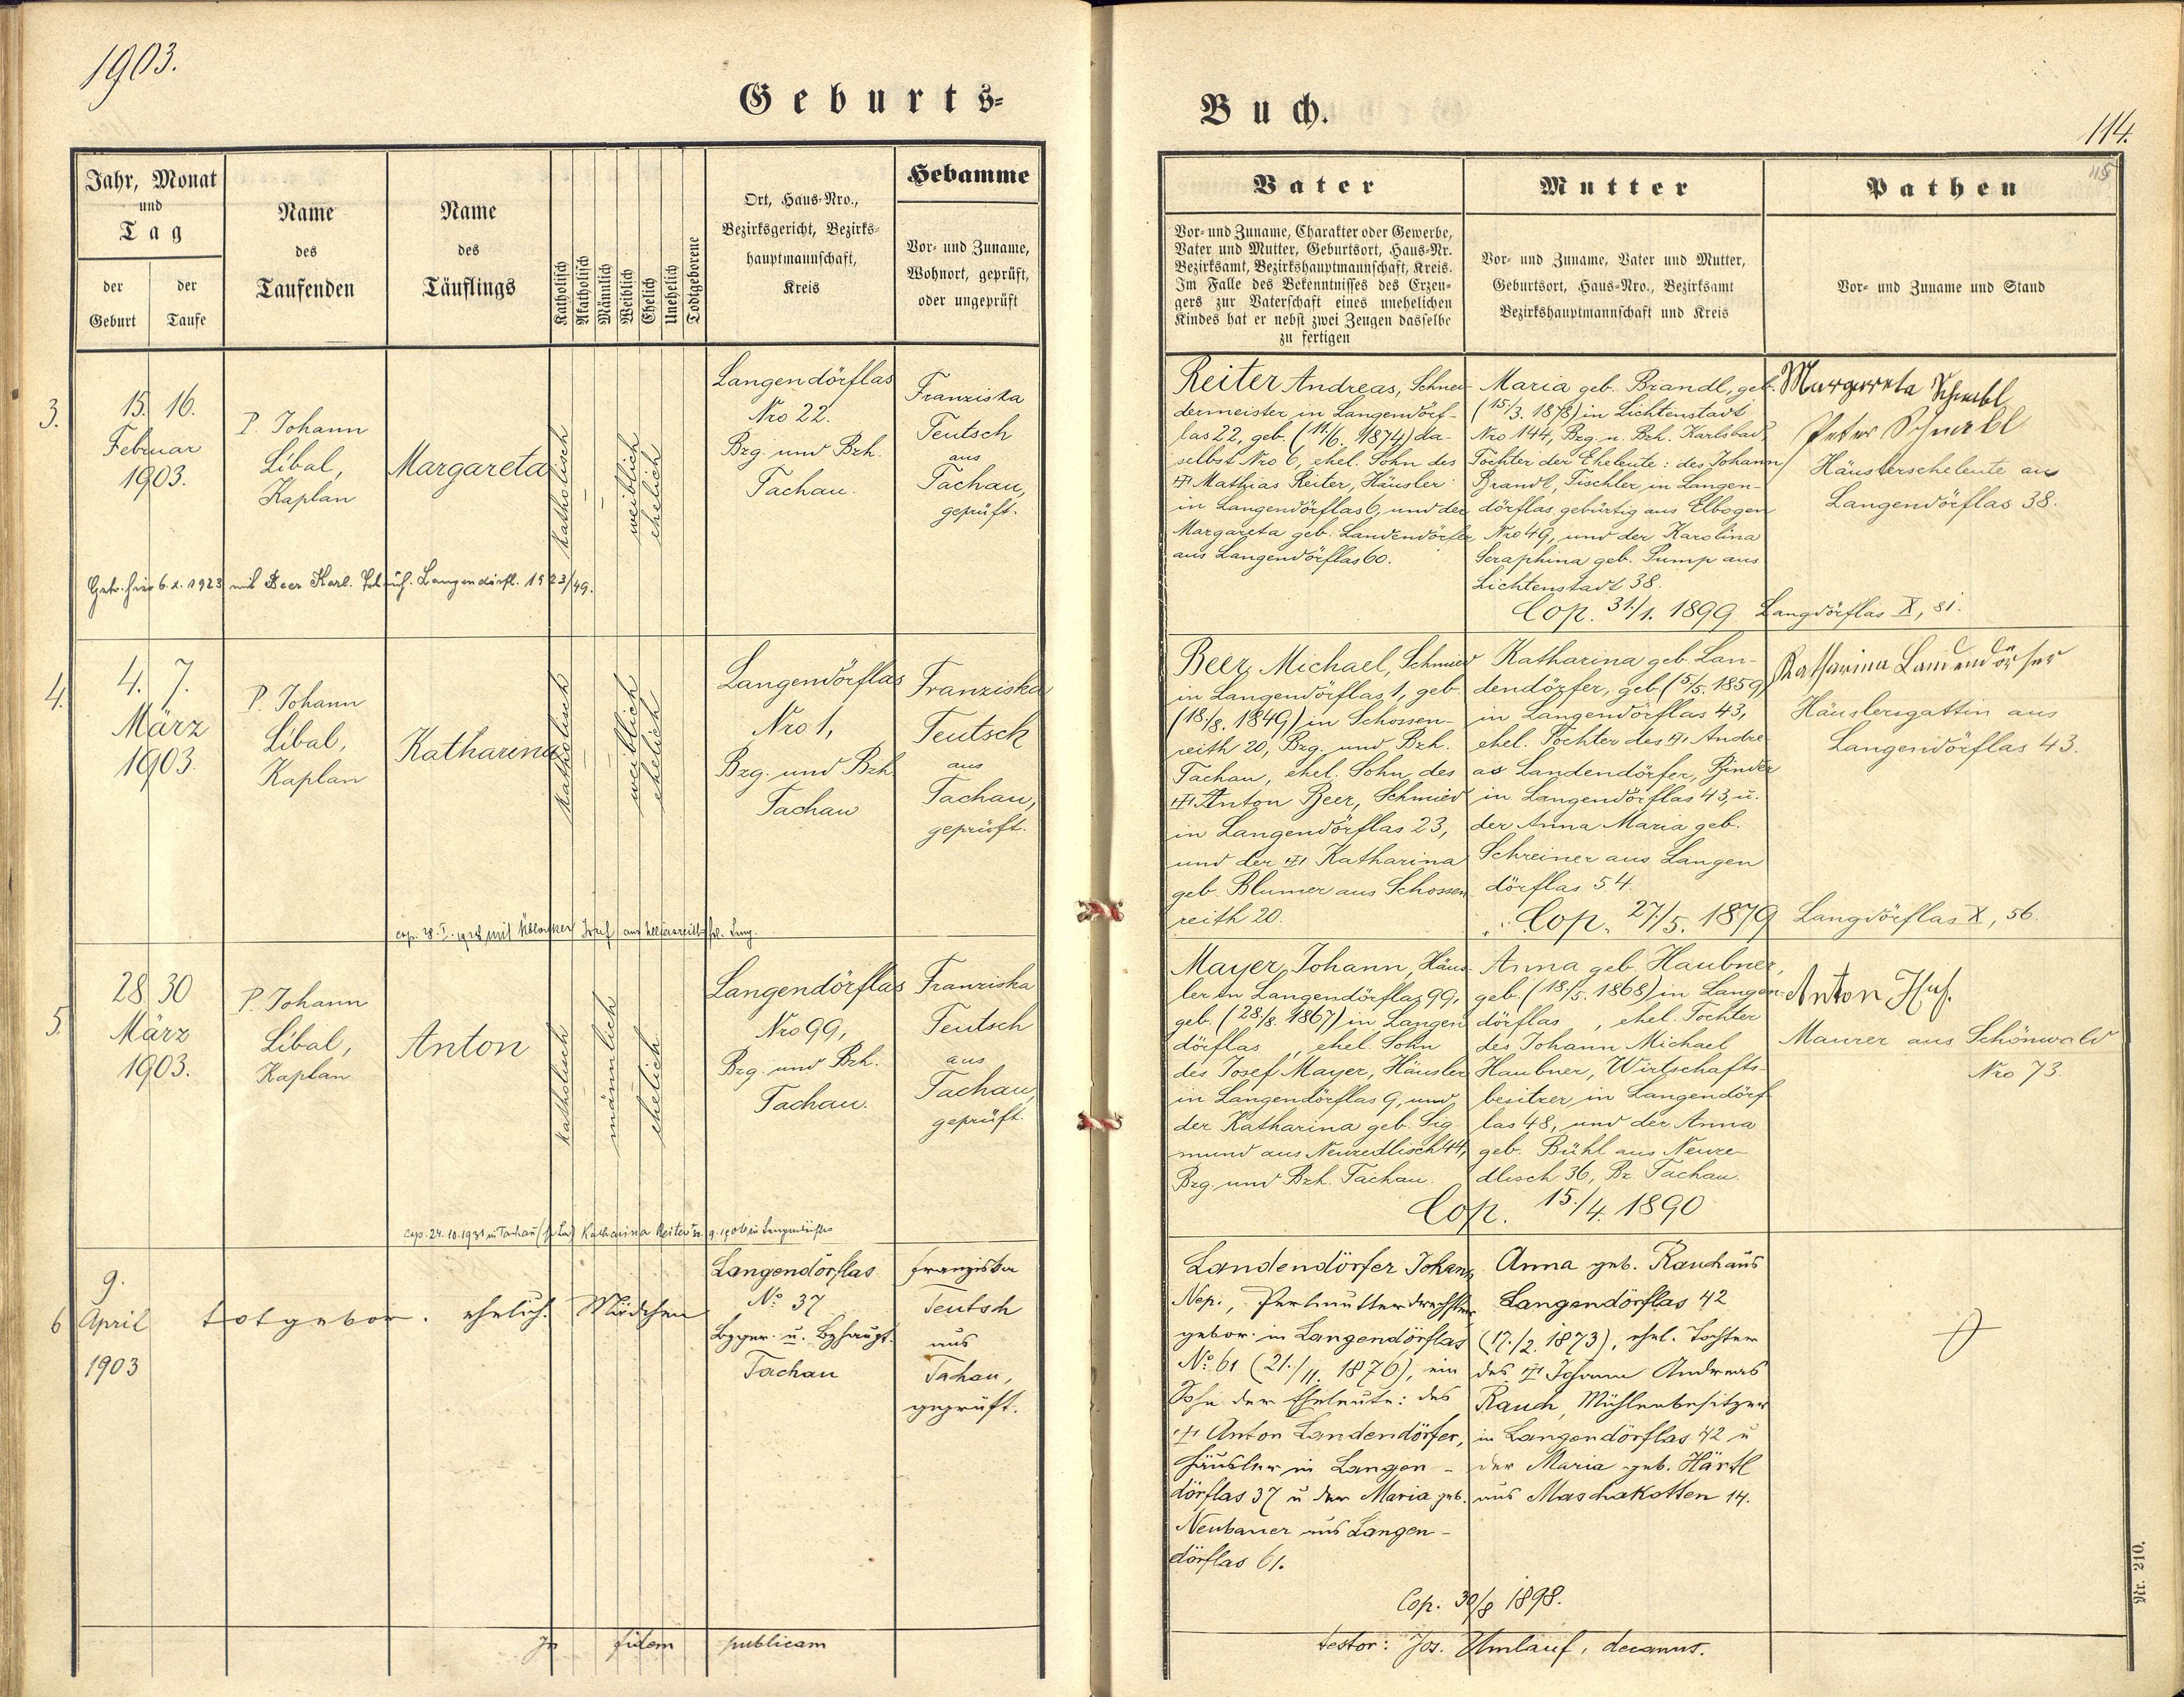 1903.
Geburts-
Jahr, Monat
und
Tag
der
Geburt
der
Taufe
Name
des
Taufenden
Name
des
Täuflings
Katholisch
Akatholisch
Männlich
Weiblich
Ehelich
Unehelich
Todtgeborene
Ort, Haus-Nro.,
Bezirksgericht, Bezirks-
hauptmannschaft,
Kreis
Hebamme
Vor- und Zuname,
Wohnort, geprüft,
oder ungeprüft
3.
15. 16.
Februar
1903.
P. Johann
Líbal,
Kaplan
Margareta
katholisch
weiblich
ehelich
Langendörflas
Nro 22.
Bzg. und Bzh.
Tachau.
Franziska
Teutsch
aus
Tachau,
geprüft.
Getr. hier 6.X.1923 mit Beer Karl. Langendörfl. 1923/49.
4.
4. 7.
März
1903.
P. Johann
Líbal,
Kaplan
Katharina
katholisch
weiblich
ehelich
Langendörflas
Nro 1,
Bzg. und Bzh.
Tachau
Franziska
Teutsch
aus
Tachau,
geprüft.
cop. mit Josef aus
5.
28 30
März
1903.
P. Johann
Líbal,
Kaplan
Anton
katholisch
männlich
ehelich
Langendörflas
Nro 99,
Bzg. und Bzh.
Tachau.
Franziska
Teutsch
aus
Tachau,
geprüft.
cop. 24.10.1931 in Tachau Katharina Reiter in Langendörflas
6
9.
April
1903
totgebor. ehelich. Mädchen
Langendörflas
No. 37
Bzger. u. Bzhaupt.
Tachau
Franziska
Teutsch
aus
Tachau,
geprüft.
In fidem publicam
Buch.
114.
115
Vater
Vor- und Zuname, Charakter oder Gewerbe,
Vater und Mutter, Geburtsort, Haus-Nr.
Bezirksamt, Bezirkshauptmannschaft, Kreis.
Im Falle des Bekenntnisses des Erzeu-
gers zur Vaterschaft eines unehelichen
Kindes hat er nebst zwei Zeugen dasselbe
zu fertigen
Mutter
Vor- und Zuname, Vater und Mutter,
Geburtsort, Haus-Nro., Bezirksamt
Bezirkshauptmannschaft und Kreis
Pathen
Vor- und Zuname und Stand
Reiter Andreas, Schnei-
dermeister in Langendörf-
las 22, geb. (11./6. 1874) da-
selbst Nro 6, ehel. Sohn des
Mathias Reiter, Häusler
in Langendörflas 6, und der
Margareta geb. Landendörfer
aus Langendörflas 60.
Maria geb. Brandl, geb.
(15./3. 1878) in Lichtenstadt
Nro 144, Bzg. u. Bzh. Karlsbad,
Tochter der Eheleute: des Johann
Brandl, Tischler in Langen-
dörflas, gebürtig aus Elbogen
Nro 49, und der Karolina
Seraphina geb. Pump aus
Lichtenstadt 38.
Cop. 31./1. 1899. Langdörflas X, 81.
Margareta Schnabl
Peter Schnabl
Häuslerseheleute aus
Langendörflas 38.
Beer, Michael, Schmied
in Langendörflas 1, geb.
(18./8. 1849) in Schossen-
reith 20, Bzg. und Bzh.
Tachau, ehel. Sohn des
Anton Beer, Schmied
in Langendörflas 23,
und der Katharina
geb. Blumer aus Schossen-
reith 20.
Katharina geb. Lan-
dendörfer, geb. (5./5. 1859)
in Langendörflas 43,
ehel. Tochter des Andre-
as Landendörfer, Binder
in Langendörflas 43, u.
der Anna Maria geb.
Schreiner aus Langen
dörflas 54.
Cop. 27./5. 1879 Langdörflas X, 56.
Katharina Landendörfer
Häuslersgattin aus
Langendörflas 43.
Mayer, Johann, Häus-
ler in Langendörflas 99,
geb. (28./8. 1867) in Langen
dörflas , ehel. Sohn
des Josef Mayer, Häusler
in Langendörflas 9, und
der Katharina geb. Sig
mund aus Neuzedlisch 44,
Bzg. und Bzh. Tachau.
Anna geb. Haubner,
geb. (18./5. 1868) in Langen-
dörflas , ehel. Tochter
des Johann Michael
Haubner, Wirtschafts-
besitzer in Langendörf-
las 48, und der Anna
geb. Bühl aus Neuze-
dlisch 36, Bz. Tachau.
Cop. 15./4. 1890
Anton Huf.
Maurer aus Schönwald
Nro 73.
Landendörfer Johann
Nep., Perlmutterdrechsler
gebor. in Langendörflas
No. 61 (21./11. 1876), ein
Sohn der Eheleute: des
Anton Landendörfer,
Häusler in Langen-
dörflas 37 u. der Maria geb.
Neubauer aus Langen-
dörflas 61.
Anna geb. Rauch aus
Langendörflas 42
(17./2. 1873), ehel. Tochter
des Johann Andreas
Rauch, Mühlenbesitzer
in Langendörflas 42 u
der Maria geb. Härtl
aus Maschakotten 14.
Cop. 30/8 1898.
testor: Jos. Umlauf, decanus.
Nr. 210.